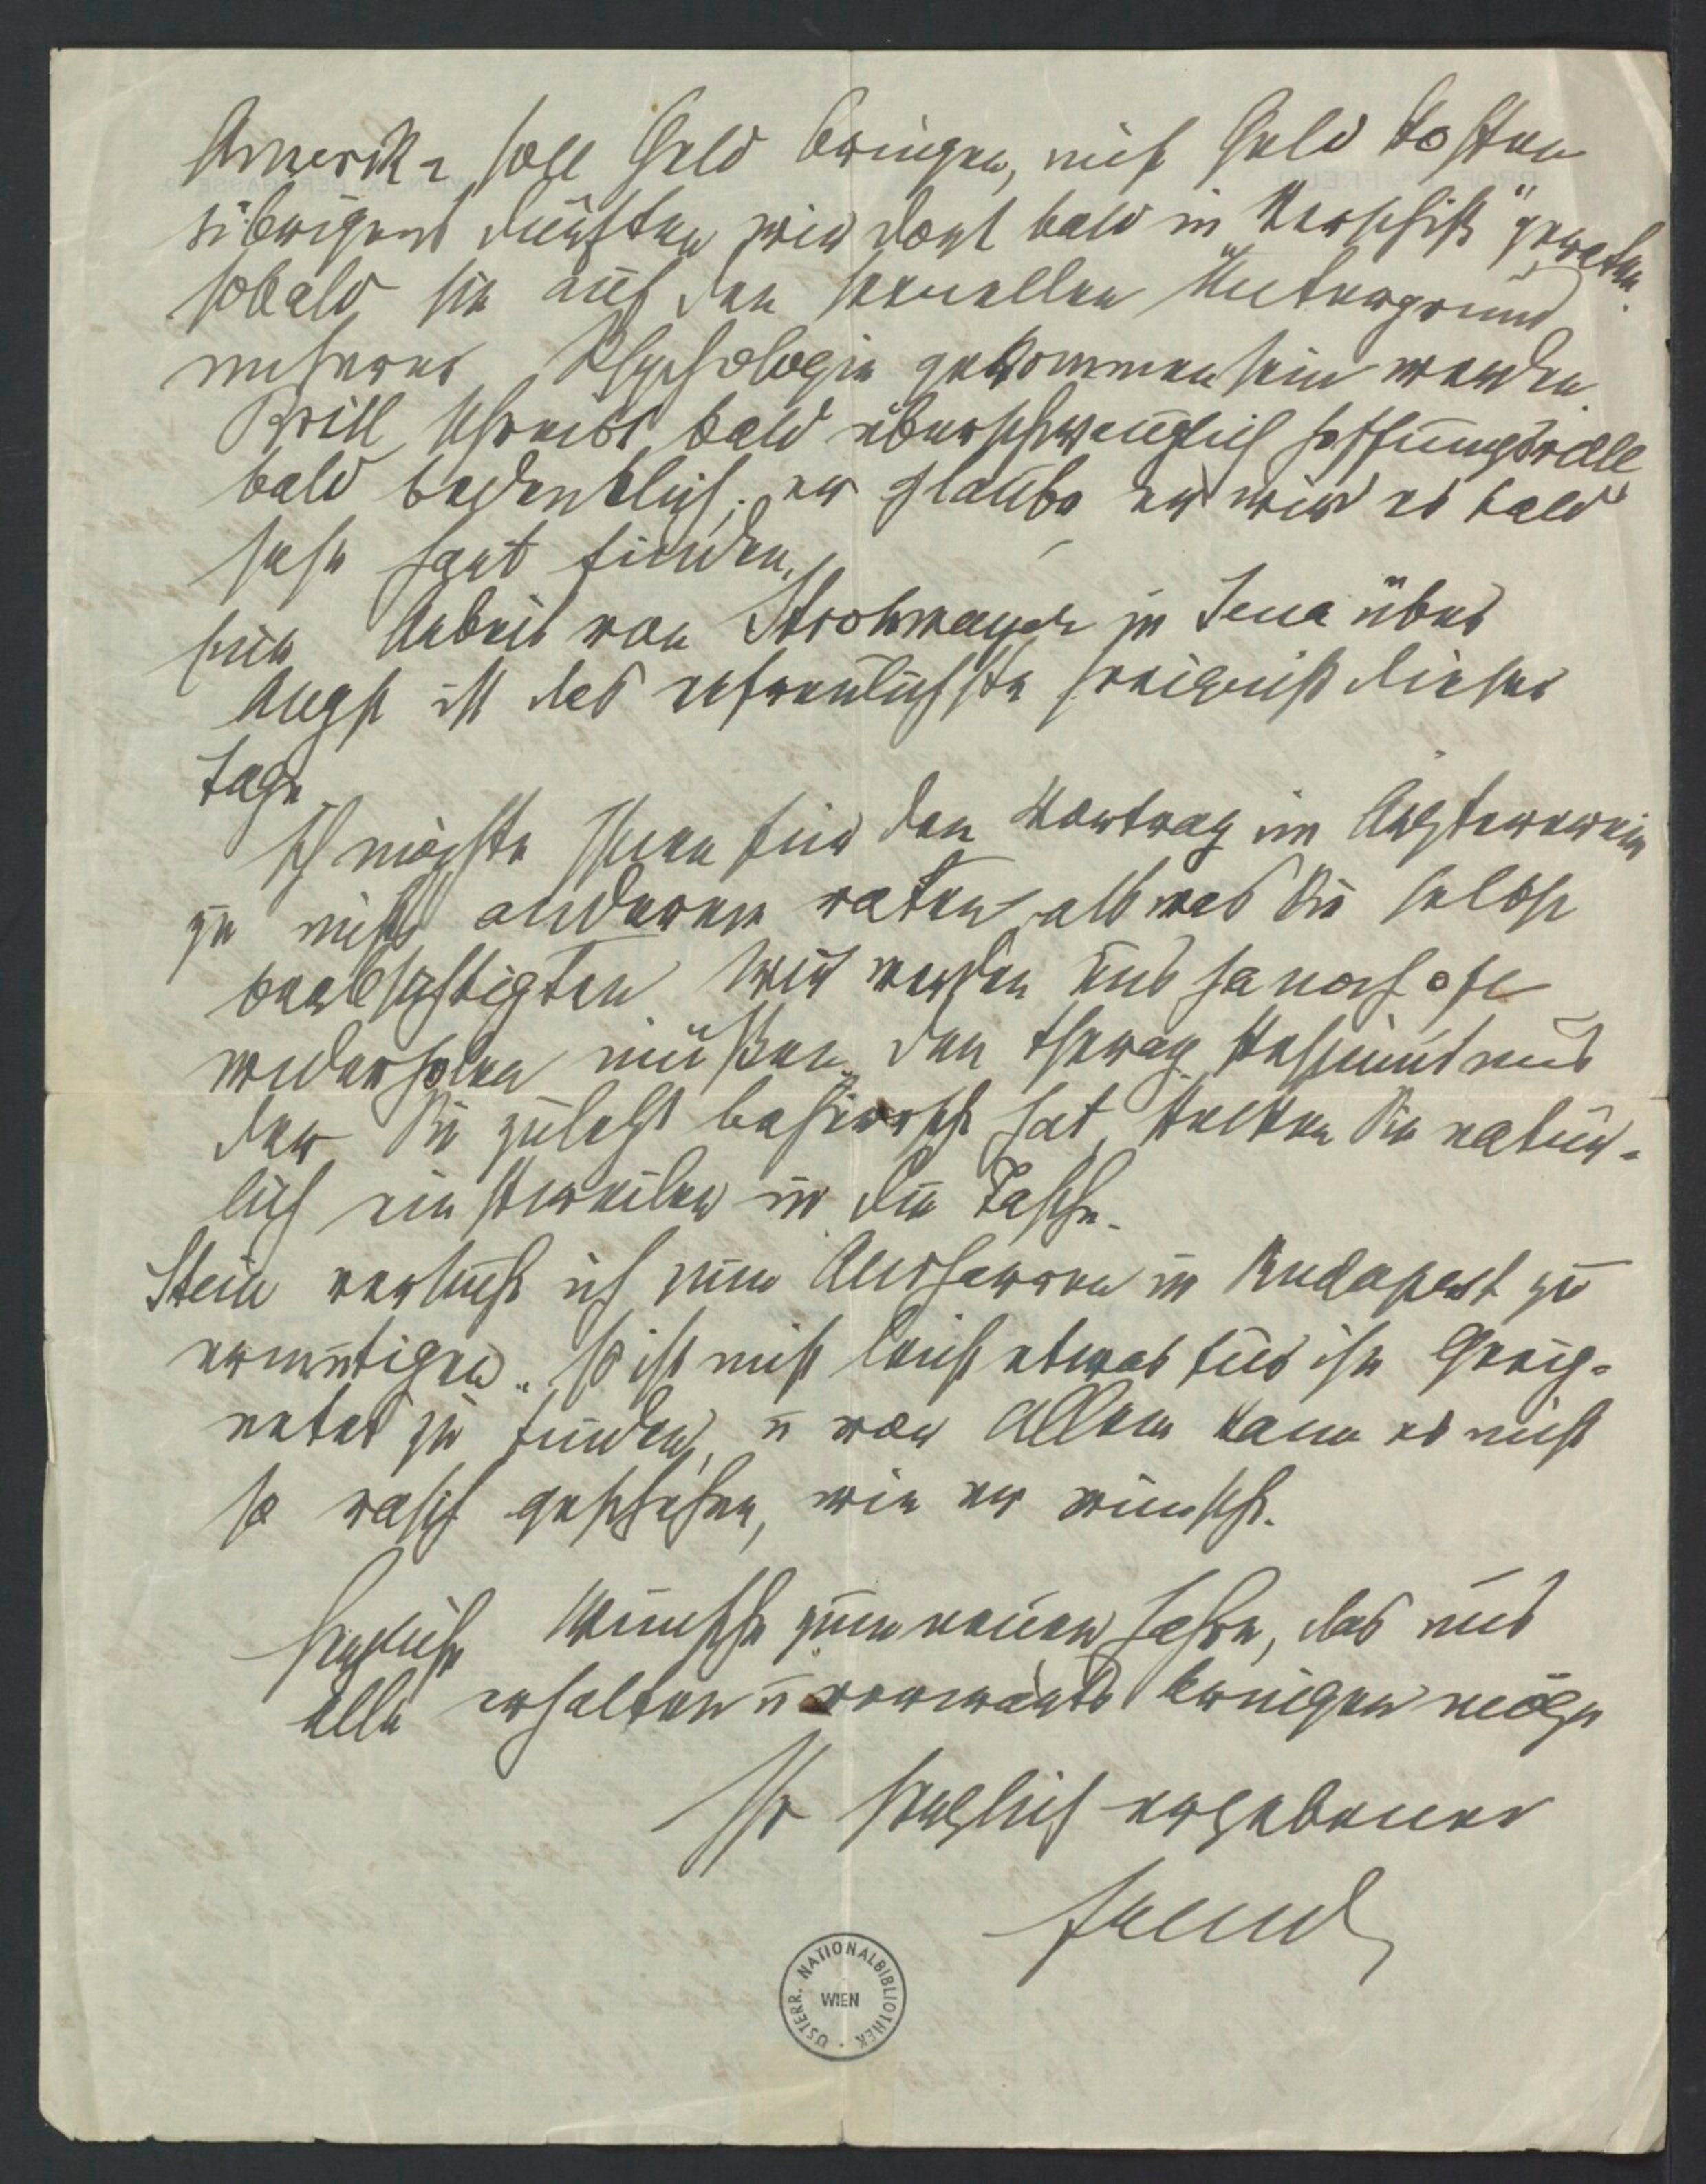 Amerika soll Geld bringen, nicht Geld kosten
übrigens dürften wir dort bald in „Verschiß“ geraten.
sobald sie auf den sexuellen Untergrund
unserer Psychologie gekommen sein werden.
Brill schreibt bald überschwenglich hoffnungsvoll
bald bedenklich; er glaubt er wird es bald
sehr hart finden.
Eine Arbeit von Strohmayer in Jena über
Angst ist das erfreulichste Ereignis dieser
Tage
Ich möchte Ihnen für den Vortrag im Ärzteverein
zu nichts anderem raten, als was Sie selbst
beabsichtigten. Wir werden uns ja noch oft
wiederholen müßen. Den therap. Pessimismus
der Sie zuletzt beherrscht hat, stecken Sie natür-
lich einstweilen in die Tasche.
Stein versuche ich zum Ausharren in Budapest zu
ermutigen. Es ist nicht leicht etwas für ihn Geeig-
netes zu finden, u vor Allem kann es nicht
so rasch geschehen, wie er wünscht.
Herzliche Wünsche zum neuen Jahre, das uns
alle erhalten u vorwärts bringen möge
Ihr herzlich ergebener
Freud
ÖSTERR. NATIONALBIBLIOTHEK
WIEN